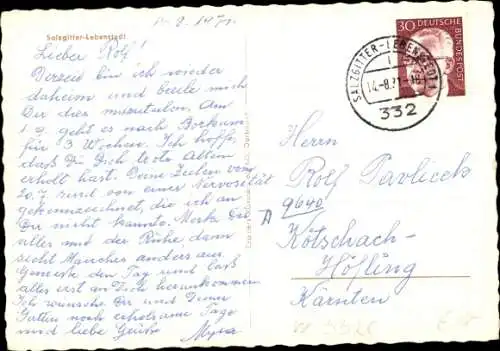 Salzgitter-Lebenstedt
Lieber Rolf!
Derzeit bin ich wieder
daheim und beeile mich
Dir dies mitzuteilen. Am
1.9. geht es nach Borkum
für 3 Wochen. Ich hoffe,
daß Du Dich trotz Allem
erholt hast. Deine Zeilen vom
20.7. sind von einer Nervosität
gekennzeichnet, die ich an
Dir nicht kannte. Merk Dir
alles mit der Ruhe dann
sieht Manches anders aus.
Genieße den Tag und laß
alles erst an Dich herankommen.
Ich wünsche Dir und Deiner
Gattin noch erholsame Tage
und liebe Grüße
30 DEUTSCHE BUNDESPOST
SALZGITTER-LEBENSTEDT 1
14.-8.71-18
332
Herrn
Rolf Pavlicek
A 9640
Kötschach-
Höfling
Kärnten